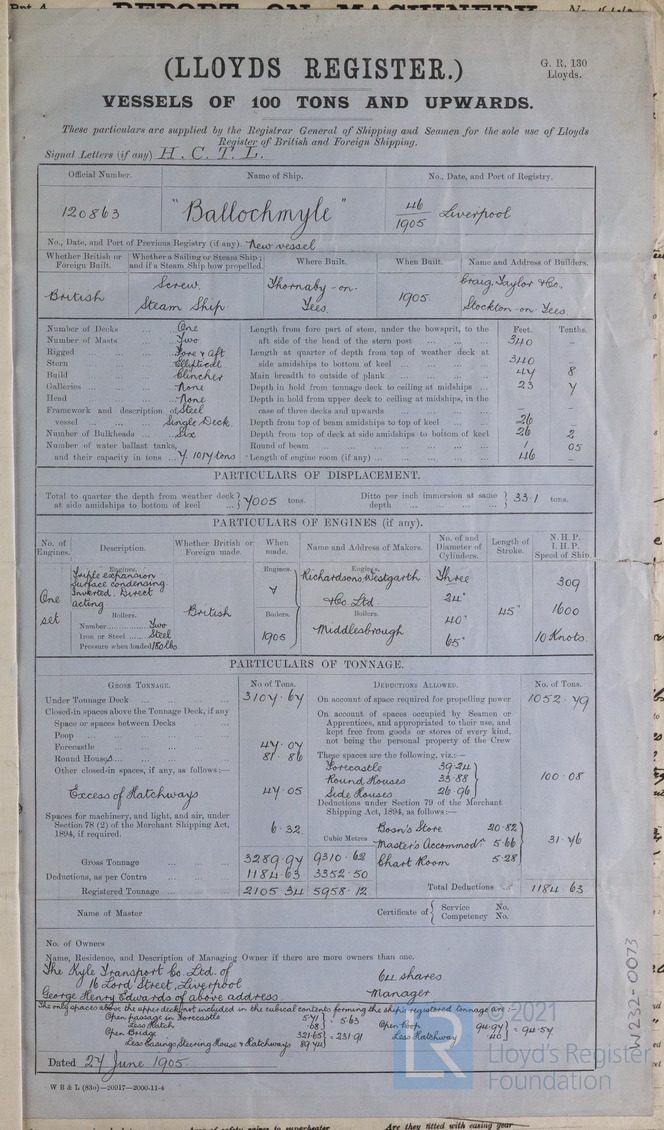 REPORT ON MACHINERY
(LLOYDS REGISTER.)
G. R. 130
Lloyds.
VESSELS OF 100 TONS AND UPWARDS.
These particulars are supplied by the Registrar General of Shipping and Seamen for the sole use of Lloyds
Register of British and Foreign Shipping.
Signal Letters (if any) H. C. T. L.
Official Number. Name of Ship. No., Date, and Port of Registry.
120863 "Ballochmyle" 46/1905 Liverpool
No., Date, and Port of Previous Registry (if any). New vessel
Whether British or Foreign Built. Whether a Sailing or Steam Ship; and if a Steam Ship how propelled. Where Built. When Built. Name and Address of Builders.
British Screw Steam Ship Thornaby-on-Tees. 1905. Craig, Taylor & Co., Stockton-on-Tees.
Number of Decks ... One
Number of Masts ... Two
Rigged ... Fore & aft
Stern ... Elliptical
Build ... Clincher
Galleries ... None
Head ... None
Framework and description of vessel ... Steel Single Deck.
Number of Bulkheads ... Six
Number of water ballast tanks, and their capacity in tons ... 7. 1017 tons
Feet. Tenths.
Length from fore part of stem, under the bowsprit, to the aft side of the head of the stern post ... 340 -
Length at quarter of depth from top of weather deck at side amidships to bottom of keel ... 340 -
Main breadth to outside of plank ... 47 8
Depth in hold from tonnage deck to ceiling at midships ... 23 7
Depth in hold from upper deck to ceiling at midships, in the case of three decks and upwards ... - -
Depth from top of beam amidships to top of keel ... 26 -
Depth from top of deck at side amidships to bottom of keel 26 2
Round of beam ... 1 05
Length of engine room (if any) ... 46 -
PARTICULARS OF DISPLACEMENT.
Total to quarter the depth from weather deck at side amidships to bottom of keel ... 7005 tons. Ditto per inch immersion at same depth ... 33.1 tons.
PARTICULARS OF ENGINES (if any).
No. of Engines. Description. Whether British or Foreign made. When made. Name and Address of Makers. No. of and Diameter of Cylinders. Length of Stroke. N. H. P. I. H. P. Speed of Ship.
One set
Engines.
Triple expansion
Surface condensing
Inverted. Direct
acting
Boilers.
Number ... Two
Iron or Steel ... Steel
Pressure when loaded 180 lbs.
British
Engines.
Boilers.
1905
Engines.
Richardsons, Westgarth
& Co. Ltd.
Boilers.
Middlesbrough
Three
24"
40"
65"
45"
309
1600
10 Knots.
PARTICULARS OF TONNAGE.
GROSS TONNAGE. No of Tons. DEDUCTIONS ALLOWED. No. of Tons.
Under Tonnage Deck ... 3107.67
Closed-in spaces above the Tonnage Deck, if any
Space or spaces between Decks
Poop ...
Forecastle ... 47.07
Round Houses ... 81.86
Other closed-in spaces, if any, as follows:—
Excess of Hatchways 47.05
Spaces for machinery, and light, and air, under Section 78 (2) of the Merchant Shipping Act, 1894, if required. 6.32
Cubic Metres
Gross Tonnage ... 3289.97 9310.62
Deductions, as per Contra ... 1184.63 3352.50
Registered Tonnage ... 2105.34 5958.12
On account of space required for propelling power 1052.79
On account of spaces occupied by Seamen or Apprentices, and appropriated to their use, and kept free from goods or stores of every kind, not being the personal property of the Crew
These spaces are the following, viz.:—
Forecastle 39.24
Round Houses 33.88
Side Houses 26.96
100.08
Deductions under Section 79 of the Merchant Shipping Act, 1894, as follows:—
Bosn's Store 20.82
Master's Accommodn. 5.66
Chart Room 5.28
31.76
Total Deductions ... 1184.63
Name of Master
Certificate of { Service No.
Competency No.
No. of Owners
Name, Residence, and Description of Managing Owner if there are more owners than one.
The Kyle Transport Co. Ltd. of
16 Lord Street, Liverpool 64 shares
George Henry Edwards of above address Manager
The only spaces above the upper deck not included in the cubical contents forming the ship's registered tonnage are:-
Open passage in Forecastle 5.71
Less Hatch .08 } = 5.63
Open Bridge 321.65
Less Casing, Steering House & Hatchways 89.74 } = 231.91
Open Poop 94.97
Less Hatchway .40 } = 94.57
Dated 27 June 1905.
W B & L (83o)—20917—2000-11-4
W232-0073
© 2021
LR
Lloyd's Register
Foundation
Are they fitted with easing gear